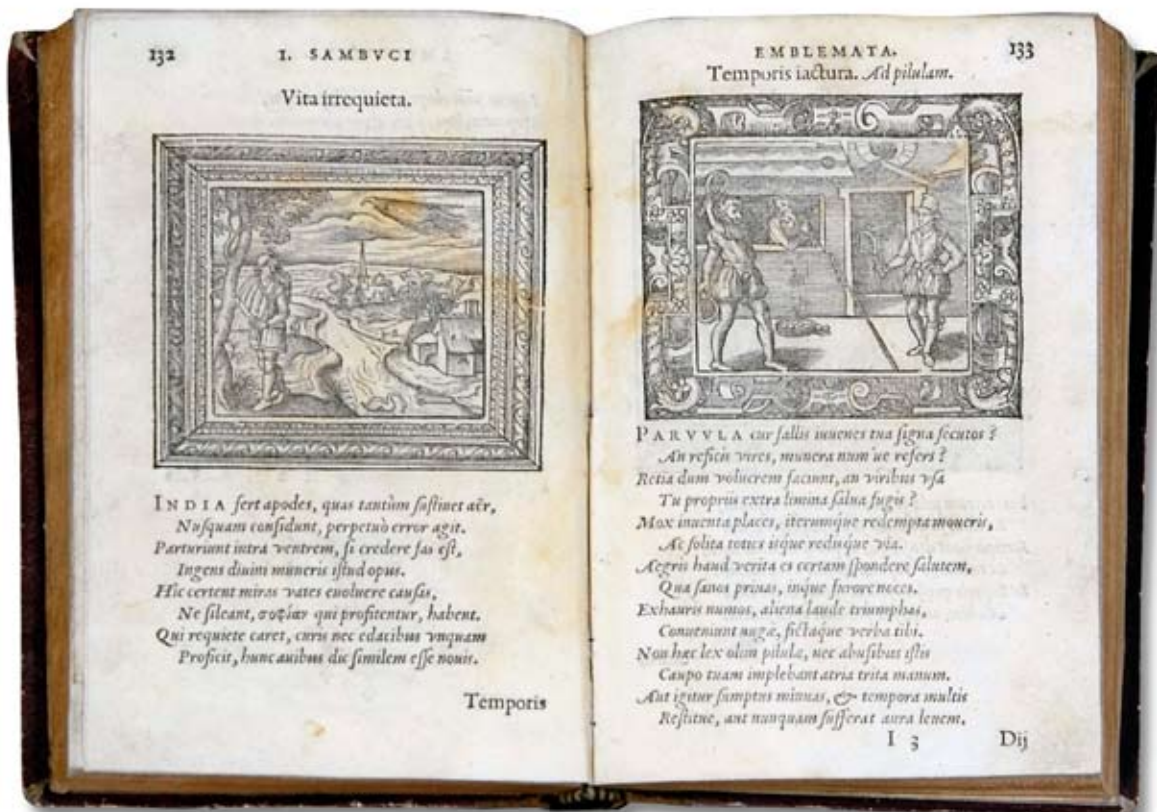 132 I. SAMBVCI
Vita irrequieta.
INDIA fert apodes, quas tantùm sustinet aër,
Nusquam considunt, perpetuò error agit.
Parturiunt intra ventrem, si credere fas est,
Ingens diuini muneris istud opus.
Hîc certent miras vates euoluere causas,
Ne sileant, σοφίαν qui profitentur, habent.
Qui requiete caret, curis nec edacibus vnquam
Proficit, hunc auibus dic similem esse nouis.
Temporis
EMBLEMATA. 133
Temporis iactura. Ad pilulam.
PARVVLA cur fallis iuuenes tua signa secutos?
An reficis vires, munera num ue refers?
Retia dum volucrem faciunt, an viribus vsa
Tu propriis extra limina salua fugis?
Mox inuenta places, iterumque redempta moueris,
Ac solita toties isque redisque via.
Aegris haud verita es certam spondere salutem,
Qua sanos priuas, inque furore neces.
Exhauris numos, aliena laude triumphas,
Conueniunt nugæ, fictaque verba tibi.
Non hæc lex olim pilulæ, nec abusibus istis
Caupo tuam implebant atria trita manum.
Aut igitur sumptus minuas, & tempora multis
Restitue, aut nunquam sufferat aura leuem.
I 3 Dij